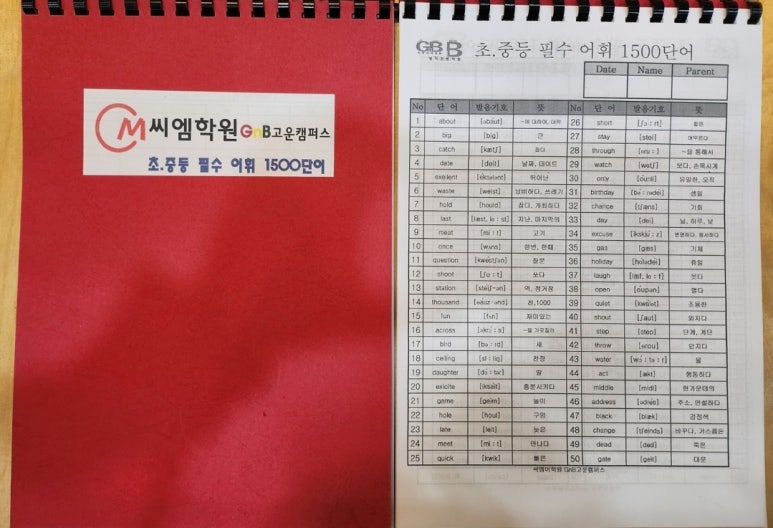 CM 씨엠학원 GnB고운캠퍼스
초.중등 필수 어휘 1500단어
GB B 초.중등 필수 어휘 1500단어
Date Name Parent
No 단 어 발음기호 뜻 No 단 어 발음기호 뜻
1 about 26 short 짧은
2 big [big] 큰 27 stay [stei] 머무르다
3 catch [kætʃ] 잡다 28 through ~을 통해서
4 date [deit] 날짜, 데이트 29 watch [wɑtʃ] 보다, 손목시계
5 exellent 뛰어난 30 only [óunli] 유일한, 오직
6 waste [weist] 낭비하다, 쓰레기 31 birthday 생일
7 hold [hould] 잡다, 개최하다 32 chance [tʃæns] 기회
8 last 지난, 마지막의 33 day [dei] 날, 하루, 낮
9 meat [mi:t] 고기 34 excuse 변명하다, 용서하다
10 once [wʌns] 한번, 한때 35 gas [gæs] 기체
11 question [kwéstʃən] 질문 36 holiday 휴일
12 shoot [ʃu:t] 쏘다 37 laugh 웃다
13 station 역, 정거장 38 open [óupən] 열다
14 thousand 천,1000 39 quiet [kwáiət] 조용한
15 fun [fʌn] 재미있는 40 shout [ʃaut] 외치다
16 across ~을 가로질러 41 step [step] 단계, 계단
17 bird [bə:rd] 새 42 throw [θrou] 던지다
18 ceiling [sí:liŋ] 천정 43 water 물
19 daughter 딸 44 act [ækt] 행동하다
20 exicite [iksáit] 흥분시키다 45 middle [mídl] 한가운데의
21 game [geim] 놀이 46 address 주소, 연설하다
22 hole [houl] 구멍 47 black [blæk] 검정색
23 late [leit] 늦은 48 change 바꾸다, 거스름돈
24 meet [mi:t] 만나다 49 dead [ded] 죽은
25 quick [kwik] 빠른 50 gate [geit] 대문
씨엠학원 GnB고운캠퍼스